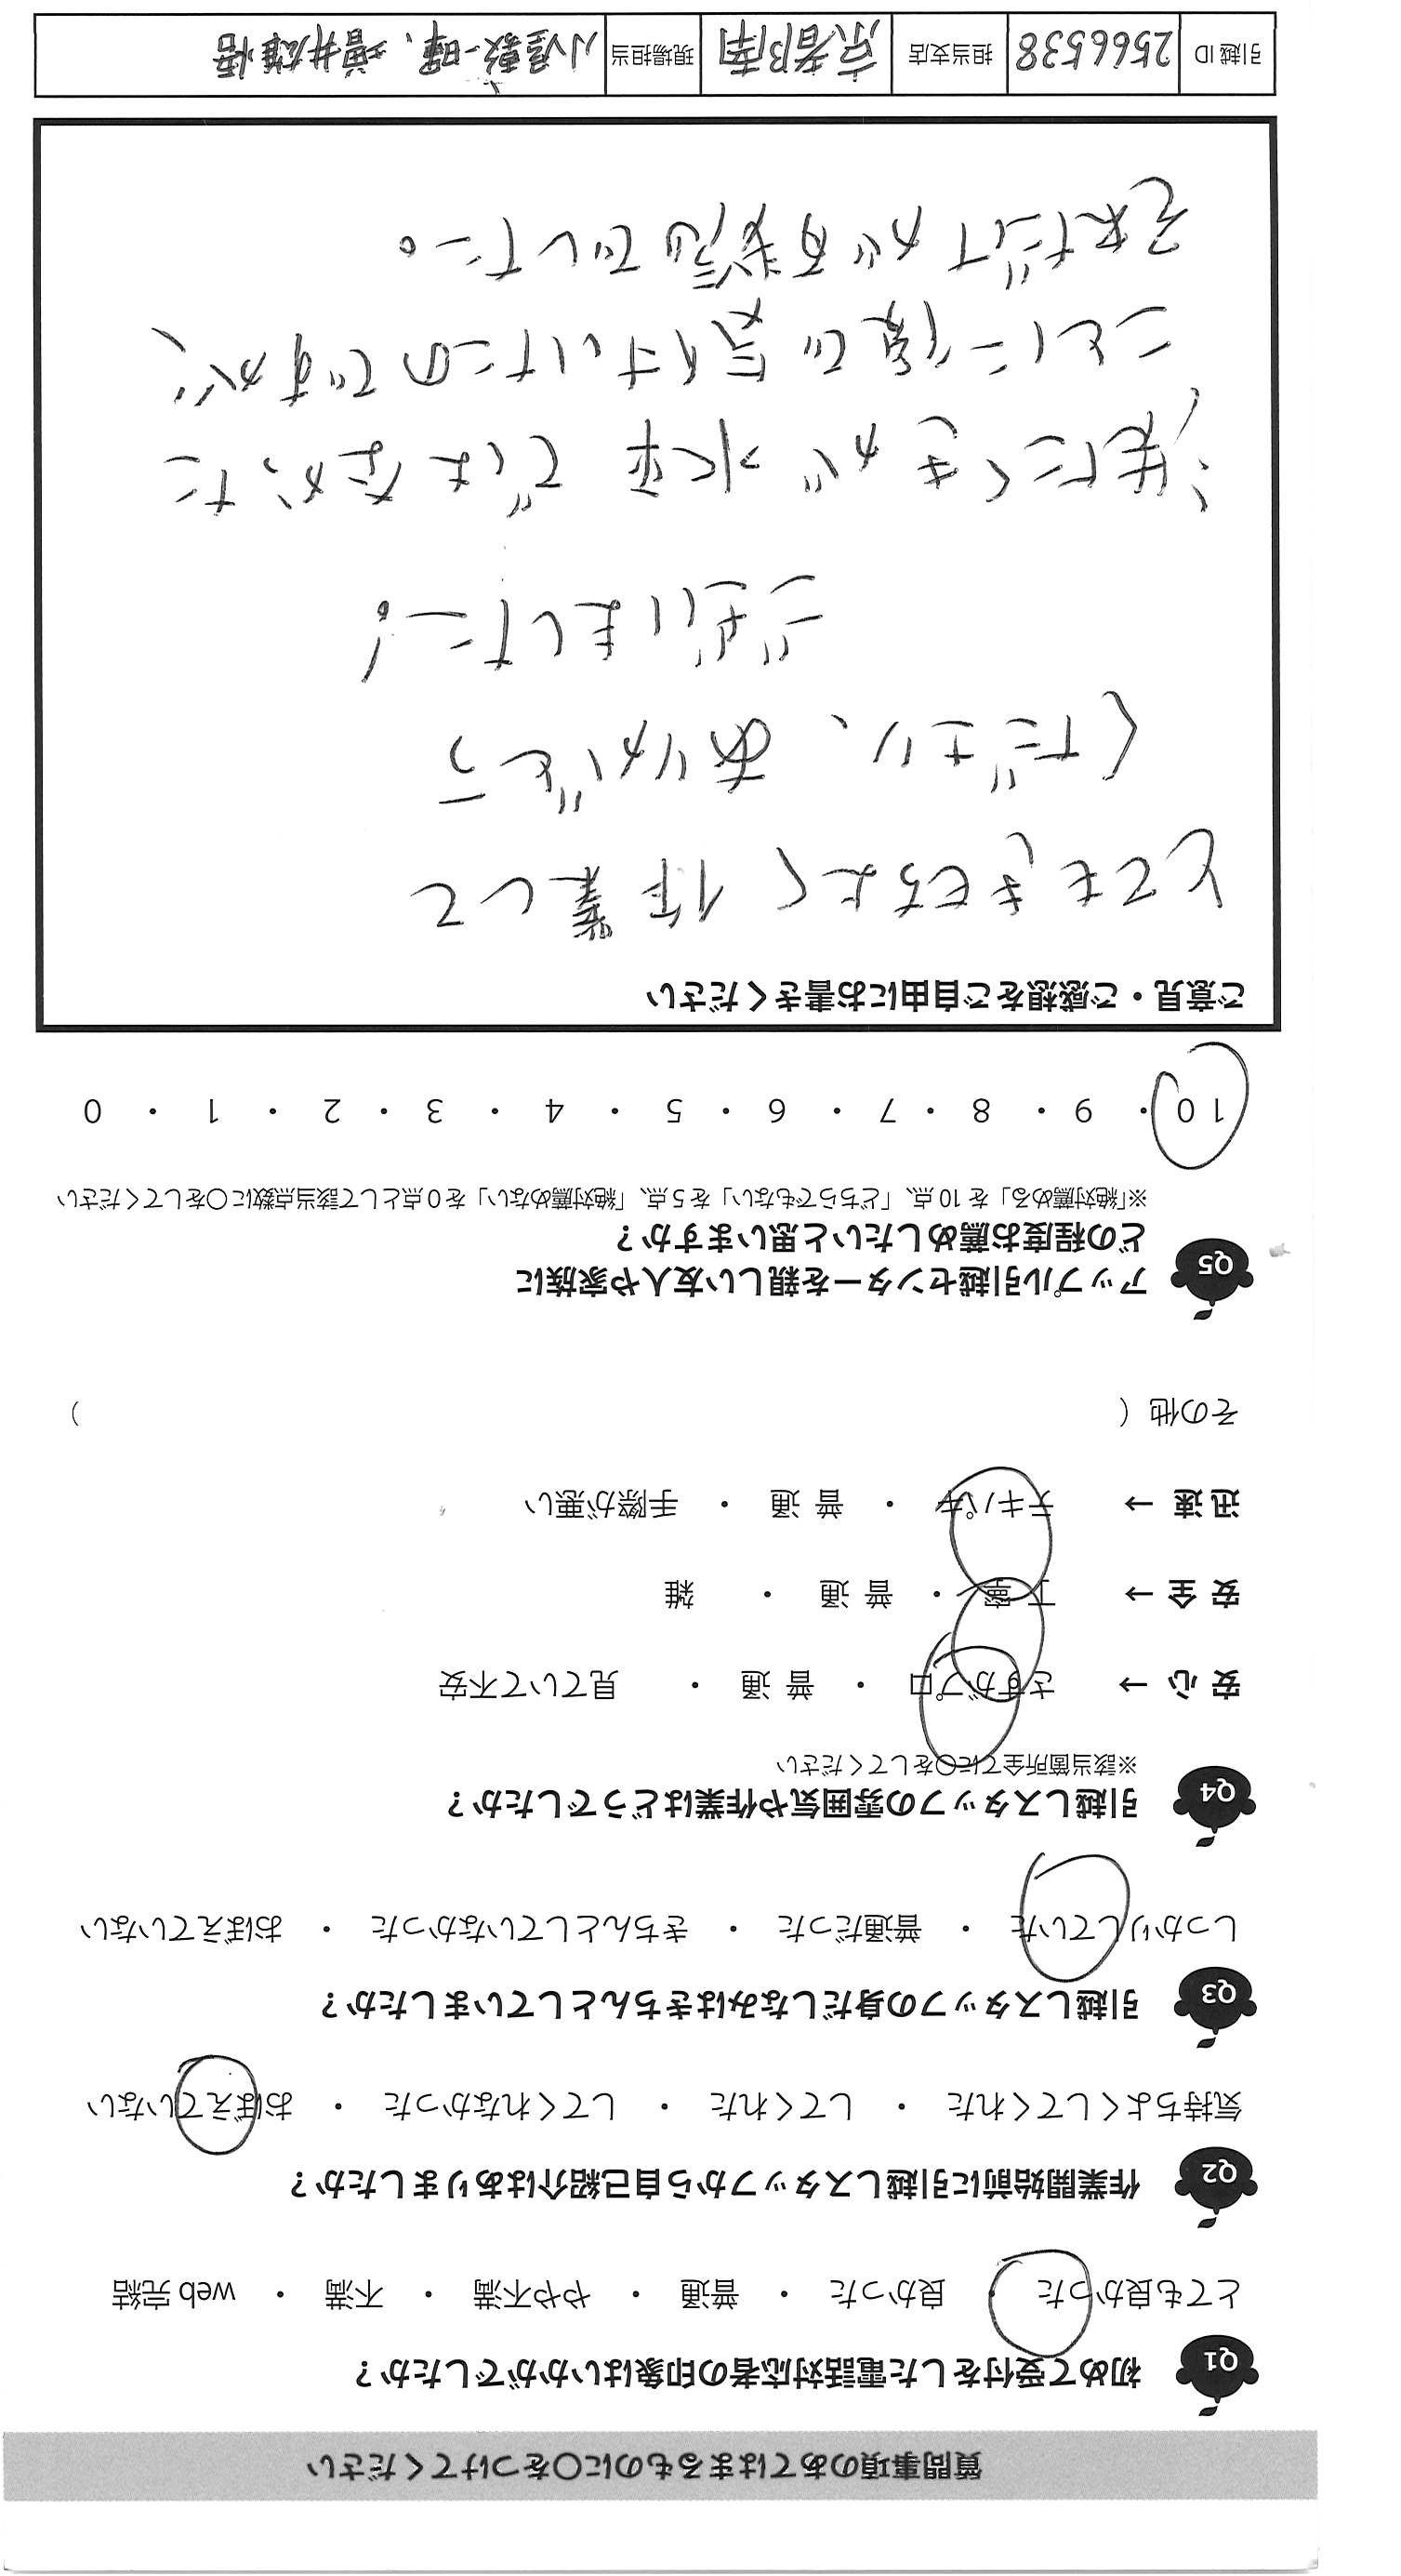 質問事項のあてはまるものに〇をつけてください
Q1 初めて受付をした電話対応者の印象はいかがでしたか？
とても良かった ・ 良かった ・ 普通 ・ やや不満 ・ 不満 ・ web 完結
Q2 作業開始前に引越しスタッフから自己紹介はありましたか？
気持ちよくしてくれた ・ してくれた ・ してくれなかった ・ おぼえていない
Q3 引越しスタッフの身だしなみはきちんとしていましたか？
しっかりしていた ・ 普通だった ・ きちんとしていなかった ・ おぼえていない
Q4 引越しスタッフの雰囲気や作業はどうでしたか？
※該当箇所全てに〇をしてください
安 心 → さすがプロ ・ 普 通 ・ 見ていて不安
安 全 → 丁 寧 ・ 普 通 ・ 雑
迅 速 → テキパキ ・ 普 通 ・ 手際が悪い
その他（ ）
Q5 アップル引越センターを親しい友人や家族に
どの程度お薦めしたいと思いますか？
※「絶対薦める」を 10 点、「どちらでもない」を 5 点、「絶対薦めない」を 0 点として該当点数に〇をしてください
10 ・ 9 ・ 8 ・ 7 ・ 6 ・ 5 ・ 4 ・ 3 ・ 2 ・ 1 ・ 0
ご意見・ご感想をご自由にお書きください
とてもきもちよく作業して
くださり、ありがとう
ございました！
洗たくきが水平ではなかった
ことに後で気付いたのですが、
それだけが残念でした。
引越 ID 2566538 担当支店 京都南 現場担当 小屋敷一暉、増井雄悟